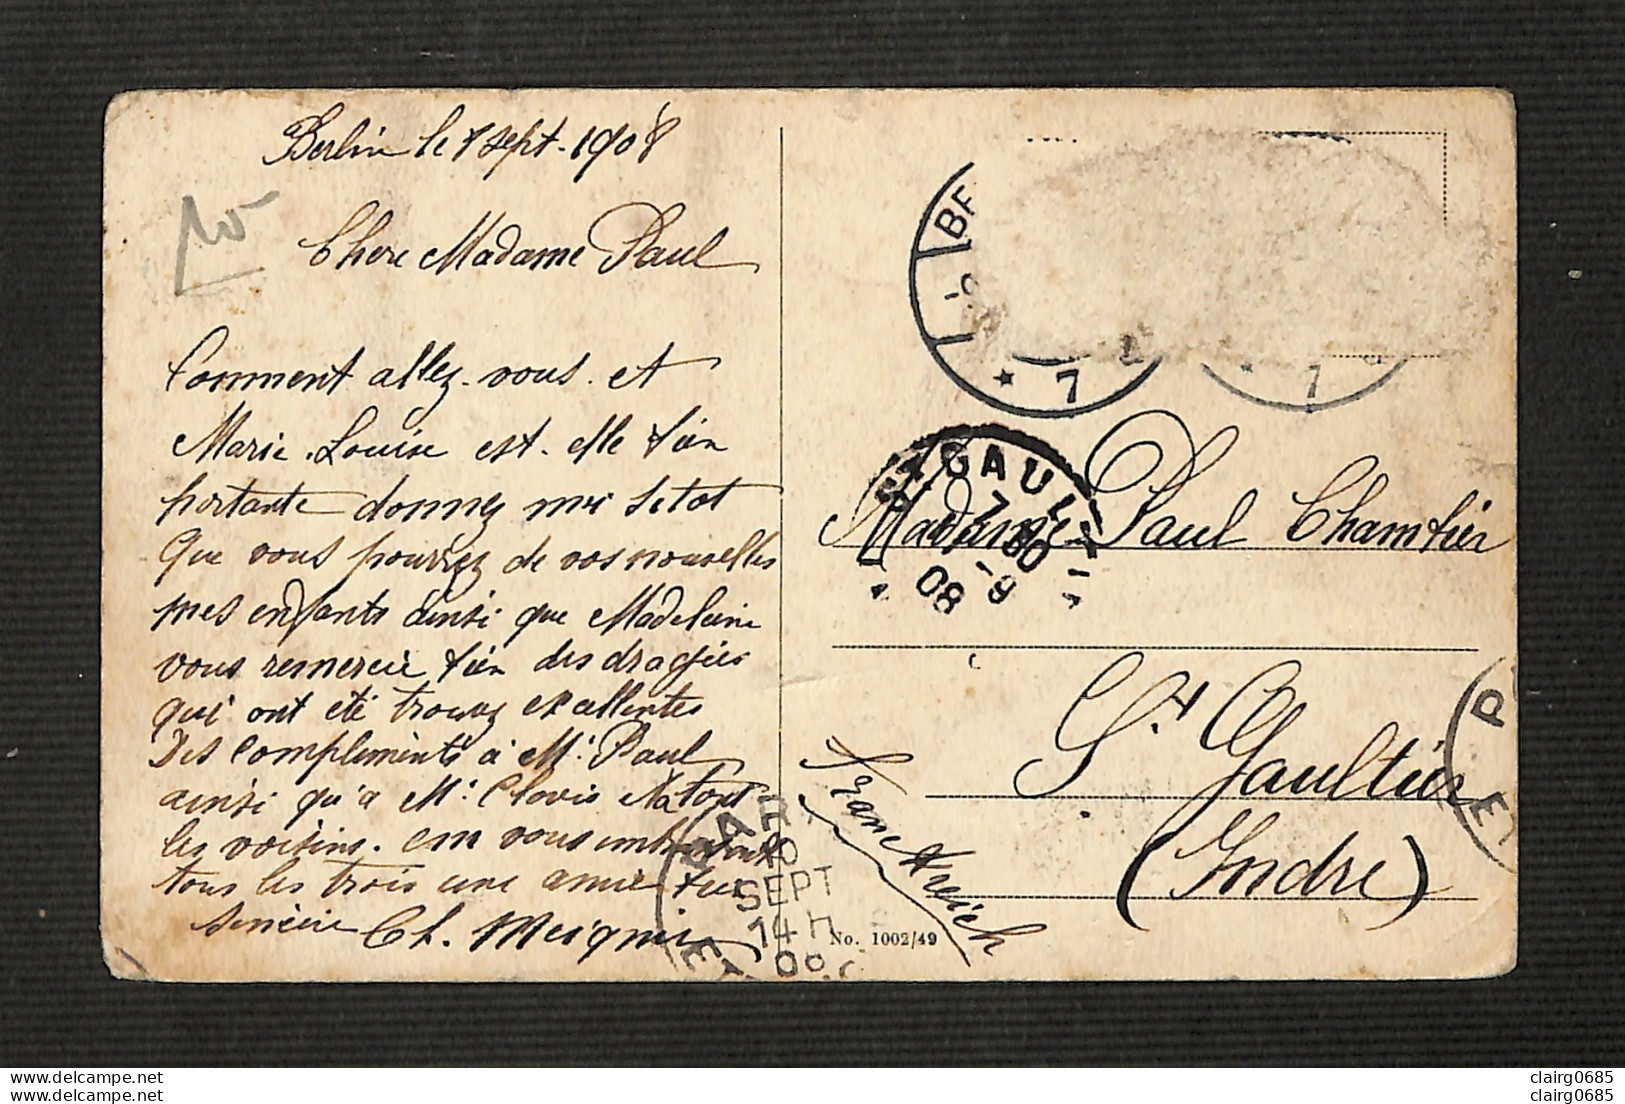 Berlin le 8 sept. 1908
10
Chere Madame Paul
Comment allez-vous. et
Marie. Louise est. elle bien
portante donnez moi sitot
que vous pourrez de vos nouvelles
mes enfants ainsi que Madeleine
vous remercie bien des dragées
qui ont été trouvez excellentes
Des compliments à Mr Paul
ainsi qu'a Mr Clovis
les voisins. em vous
tous les trois une amie
sincère Ch.
BE
7
7
GAUL
7 30
9
08
Madame Paul Chambier
St Gaultier
(Indre)
Franckreich
PE
GAR
10
SEPT
14 H
08
No. 1002/49
clairg0685
clairg0685
clairg0685
clairg0685